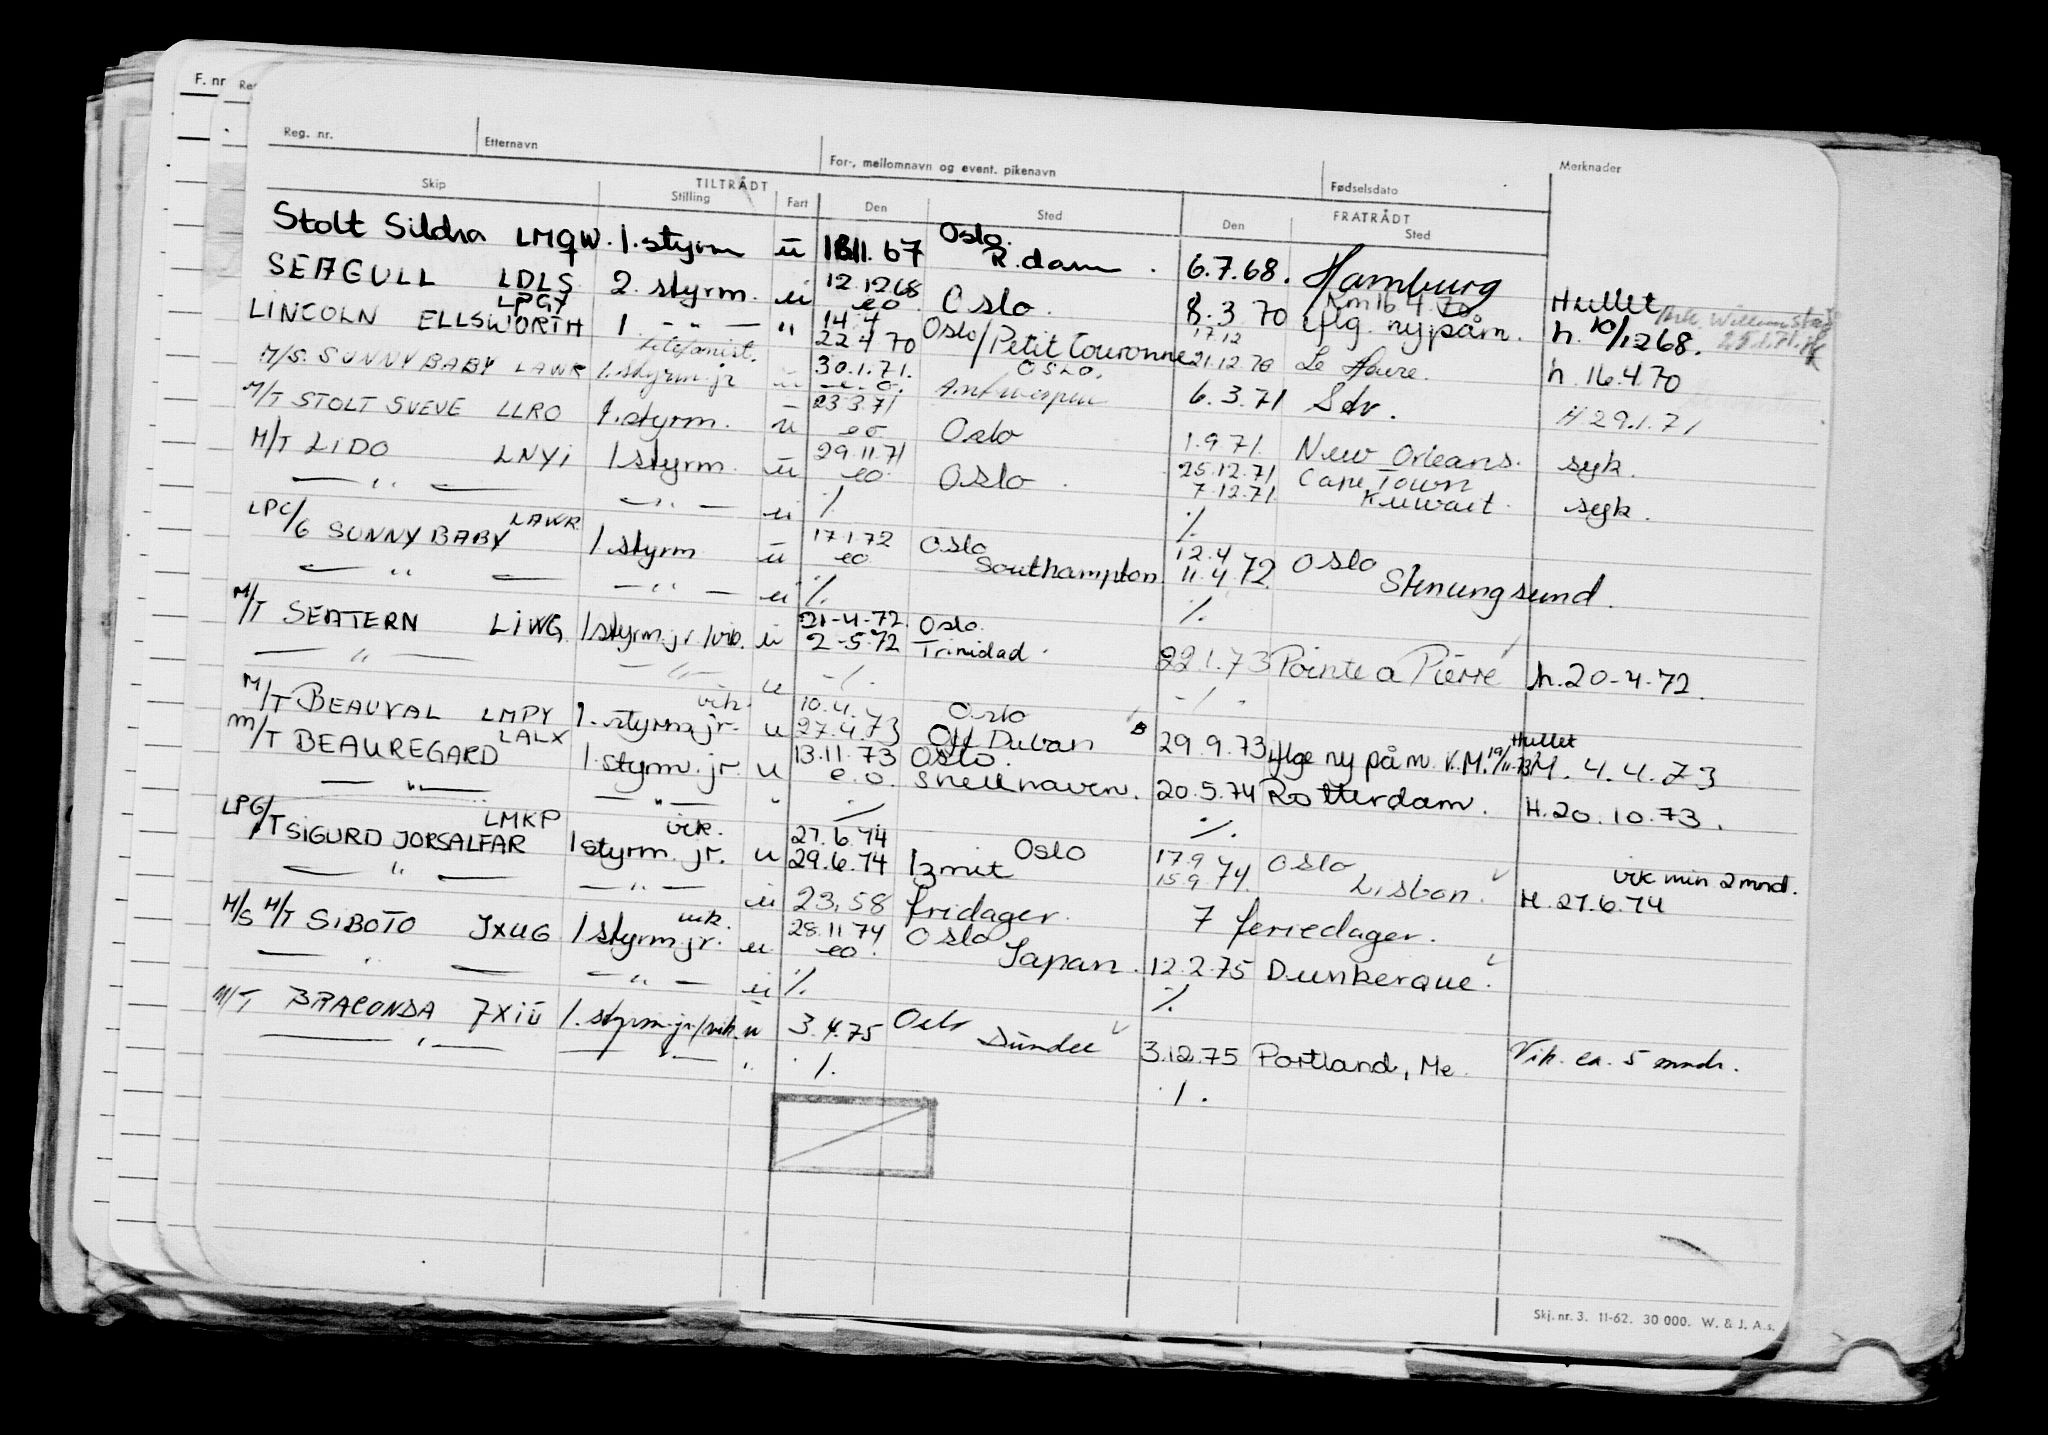 F. nr
Reg. nr. Etternavn For-, mellomnavn og event. pikenavn Fødselsdato Merknader
Skip TILTRÅDT Stilling Fart Den Sted FRATRÅDT Den Sted
Stolt Sildra LMQW. 1. styrm u 11. 67 Oslo. R.dam. 6.7.68. Hamburg
SEAGULL LDLS 2. styrm. u 12.12 68 eo Oslo. 8.3 70 Hullet
LINCOLN ELLSWORTH LPGY 1 - " - " 14.4 22 4 70 Oslo/Petit Couronne 17.12 21.12.70 Le Havre. h. 10/12 68.
M/S. SUNNY BABY LAWR 1. styrm. jr u 30.1.71. e.o. OSLO. Antwerpen 6.3.71 Sdv. h. 16.4.70
M/T STOLT SVEVE LLRO 1. styrm. u 23 3 71 eo Oslo 1.9 71. New Orleans. H 29.1.71
M/T LIDO LNYI 1 styrm. u 29.11.71 eo. Oslo. 25.12.71 Cape Town syk.
— " — — " — u ./. 7.12.71 Kuwait. syk.
LPG/G SUNNY BABY LAWR 1 styrm u 17.1.72 eo. Oslo Southampton. ./.
12.4 11.4.72 Oslo Stenungsund.
— " — — " — u ./. ./.
M/T SEATERN LIWG 1 styrm. jr/vik. u 21-4-72. Oslo.
2-5.72 Trinidad. 22.1.73 Pointe a Pierre h. 20-4-72.
— " — — " — u -/. -/.
M/T BEAUVAL LMPY 1. styrm jr. vik. u 10.4. 27.4.73 Oslo Off Durban 29.9.73 iflge ny påm. Hullet
M. 4.4.73
M/T BEAUREGARD LALX 1. styrm. jr. u 13.11.73 e.o. Oslo. Snellhaven. 20.5.74 Rotterdam. H. 20.10.73.
— " — — " — " ./. ./.
LPG/T SIGURD JORSALFAR LMKP 1 styrm. jr. vik. u 27.6.74 29.6.74 Oslo Izmit 17.9 15.9.74. Oslo Lisbon. vik min 2 mnd.
H. 27.6.74
— " — — " — u 23,58 fridager. 7 feriedager.
M/S M/T SIBOTO JXUG 1 styrm jr. vik. u 28.11 74 eo. Oslo Japan. 12.2.75 Dunkerque.
— " — — " — u ./. ./.
M/T BRACONDA JXIU 1. styrm. jr/vik. u 3.4.75 Oslo Dundee 3.12.75 Portland, Me. Vik. ca. 5 mndr.
— " — — " — " ./. ./.
Skj. nr. 3. 11-62. 30 000. W. & J. A.s.